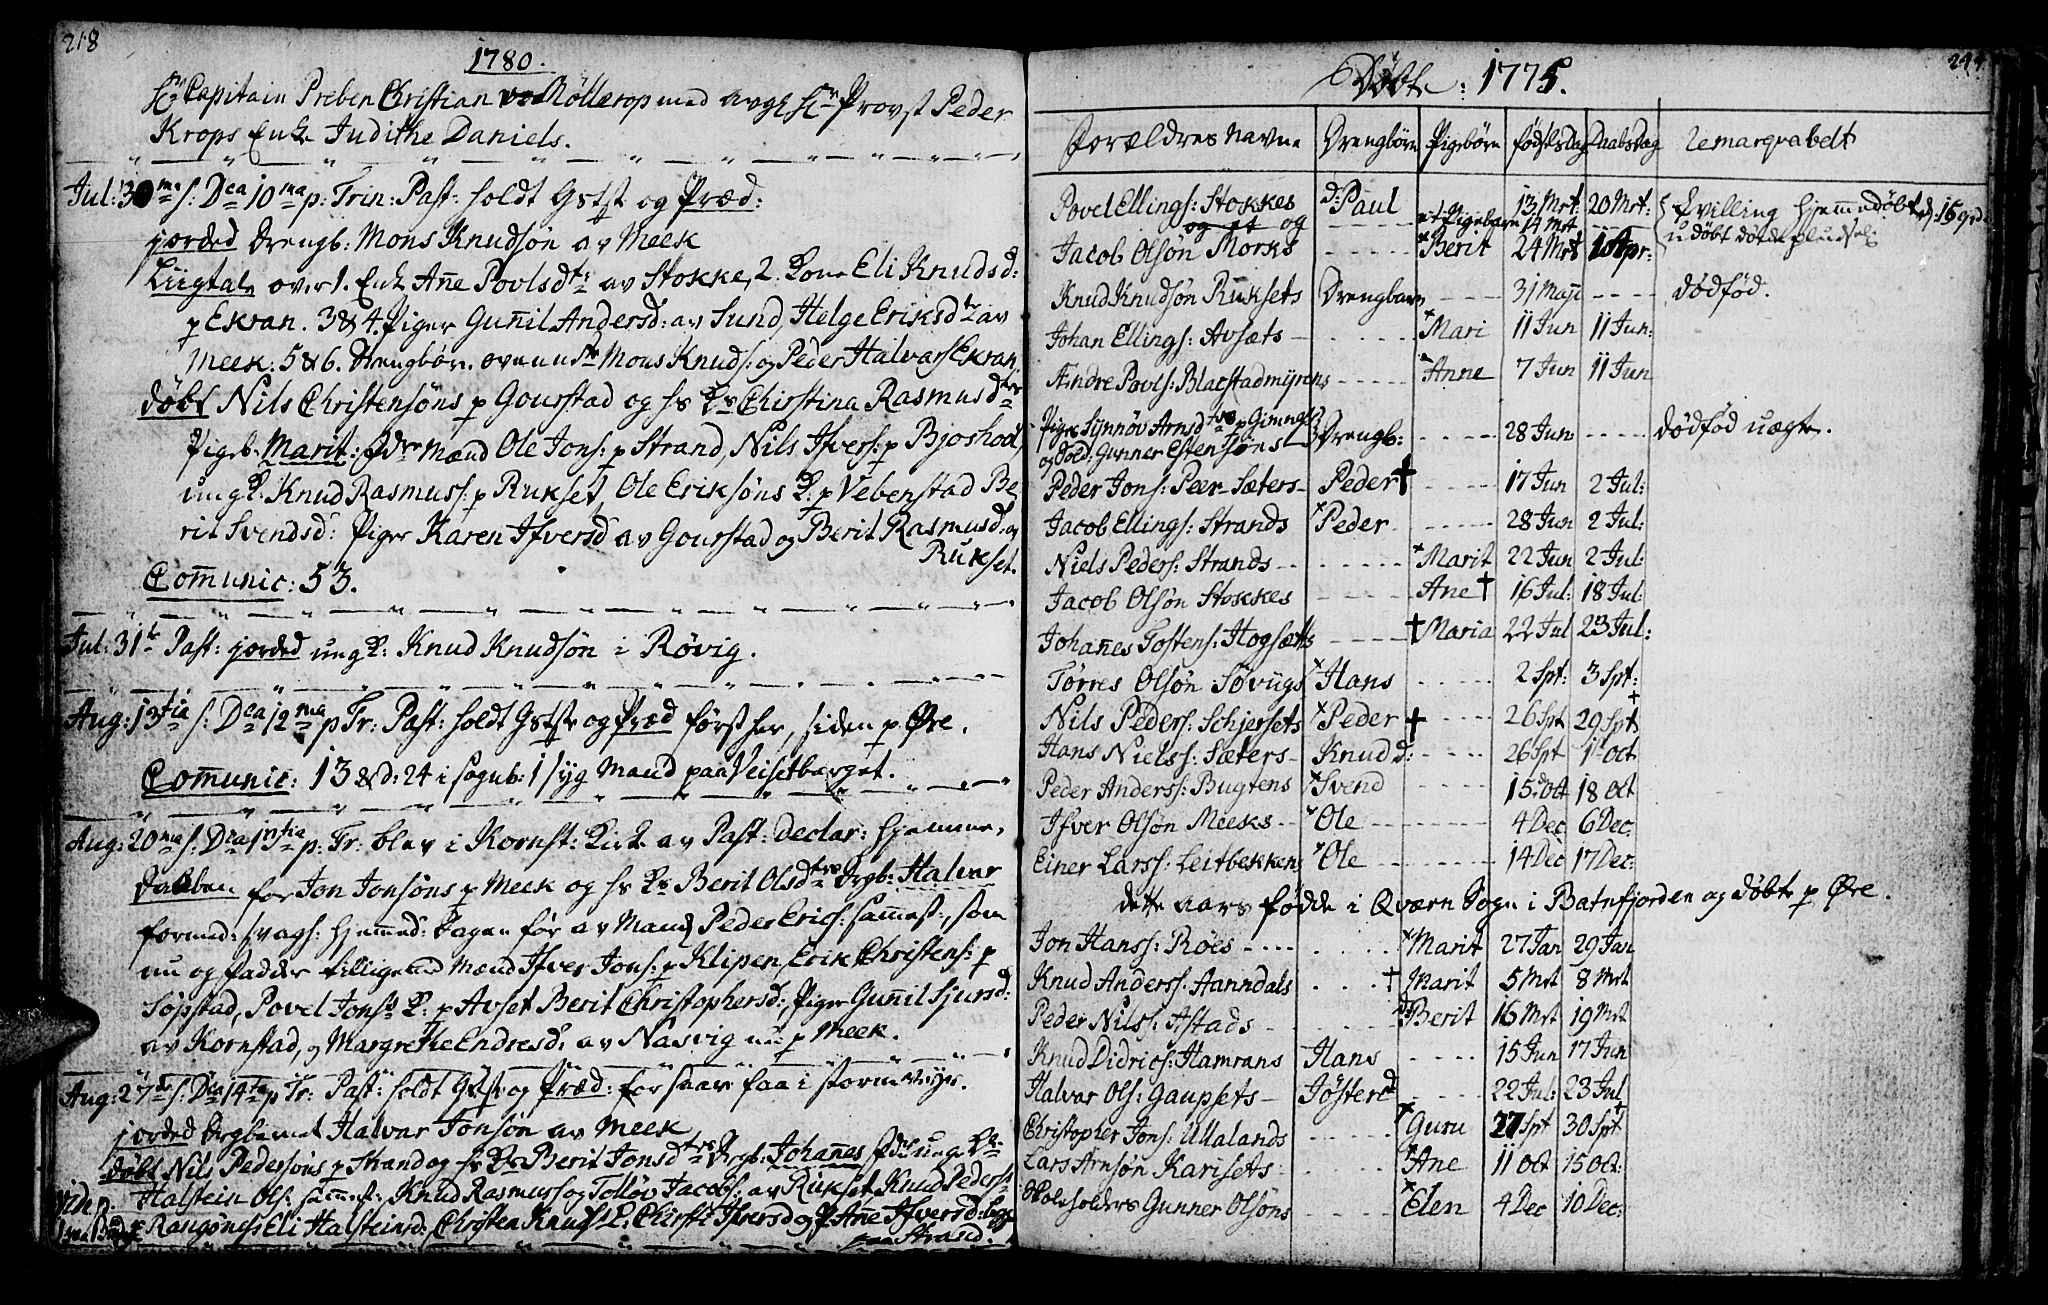 218
1780.
Hr Capitain Preben Christian von Møllerop med avg: Hr Provst Peder
Krops Enke Judithe Daniels.
Jul: 30ma s: Dca 10ma p: Trin: Past: holdt Gstst og Præd:
jorded Drengb: Mons Knudsøn av Meek
Liigtale over 1. Enk Ane Povlsdtr av Stokke, 2. Kone Eli Knudsd:
p Ekran. 3 & 4. Piger Gunil Andersd: av Sund, Helge Eriksdtr av
Meek: 5 & 6. Drengbør. ovennte Mons Knuds: og Peder Halvars: Ekran,
døbt Nils Christensøns p Gourstad og hs Ks Chirstina Rasmusdtrs
Pigeb. Marit: Fdre Mænd Ole Jons: p Strand, Nils Ifvers: p Bjoshod,
ung K: Knud Rasmuss: p Rukset, Ole Eriksøns K: p Vebenstad Be
rit Svendsd: Piger Karen Ifversd av Gourstad og Berit Rasmusd: av
Rukset.
Comunic: 53.
Jul: 31te Past: jorded ung K: Knud Knudsøn i Røvig.
Aug: 13tia s: Dca 12ma p Tr: Past: holdt Gstste og Præd først her, siden p Øre.
Comunic: 13 & d: 24 i sognb: 1 syg Mand paa Veisetberget.
Aug: 20ma s: Dca 13tia p: Tr: blev i Kornst: Kirke av Past: declar: hjemme-
daaben for Jon Jonsøns p Meek og hs Ks Berit Olsdtrs Drgb: Halvar
formed: svags: hjemed: Dagen før av Mand Peder Erics: samest:, som
nu og Fadder tillige med Mænd Ifver Jons: p Klipen, Erik Christens: p
Sopstad, Povel Jons: K: p Avset Berit Christophersd: Piger Gunil Sjursd:
av Kornstad, og Margrethe Endresd: av Nasvig nu p Meek.
Aug: 27de s: Dca 14ta p Tr: Past: holdt Gstst: og Præd: for saare faa i storm veyr.
jorded Drgbarnet Halvar Jonsøn av Meek
døbt Nils Pedersøns p Strand og hs Ks Berit Jonsdtrs Drgb: Johanes Fdre ung K:
Halstein Ols: samest: Knud Rasmuss og Tolløv Jacobs: av Rukset Knud Peders:
Rangønes Eli Halsteinsd: Christen Knuds: K: Chirsti Ifversd og P Ane Ifversd: begge
paa Strand.
244
Døbte: 1775.
Forældres Navne Drengbørn Pigebørn fødselsdag Daabsdag Remarqvabelt
Povel Ellings: Stokkes d: Paul 13 Mrt: 20 Mrt: Tvilling hjemmedøbt d: 15 Mrt
og et og et Pigebarn 14 Mrt udøbt døde pludselig
Jacob Olsøn Morks Berit 24 Mrt 1 Apr:
Knud Knudsøn Ruksets Drengbarn 31 Maji dødfød.
Johan Ellings: Avsæts Mari 11 Jun 11 Jun:
Endre Povls: Blaestadmyrens Anne 7 Jun 11 Jun
Pige Synnøv Arnsdtrs p Gimnes Drengb: 28 Jun dødfød uægte.
og Sold: Gunner Estensøns
Peder Jons: Peer-Sæters Peder † 17 Jun 2 Jul:
Jacob Ellings: Strands Peder 28 Jun 2 Jul:
Niels Peders: Strands Marit 22 Jun 2 Jul:
Jacob Olsøn Stokkes Ane † 16 Jul: 18 Jul:
Johanes Tostens: Hogsæts † Maria 22 Jul 23 Jul:
Tørres Olsøn Søvigs Hans 2 Spt: 3 Spt:
Nils Peders: Schjersets Peder † 26 Spt 29 Spt
Hans Nielss: Sæters Knud d: 26 Spt 1 Oct
Peder Anderss: Bugtens Svend 15 Oct 18 Oct
Ifver Olsøn Meeks Ole 4 Dec 6 Dec:
Einer Larss: Leitbekkens Ole 14 Dec 17 Dec:
dette aars fødde i Qværn Sogn i Batnfjorden og døbte p Øre.
Jon Hanss: Røes Marit 27 Jan 29 Jan
Knud Anderss: Aanndals † Marit 5 Mrt 8 Mrt
Peder Nils: Astads Berit 16 Mrt 19 Mrt
Knud Didrics: Hamrans Hans 15 Jun 17 Jun
Halvar Ols: Gaupsets Jøster d 22 Jul: 23 Jul
Christopher Jons: Ullalands Guru 27 Spt 30 Spt
Lars Arnsøn Karisets Ane 11 Oct 15 Oct:
Skoleholders Gunner Olsøns Elen 4 Dec 10 Dec: